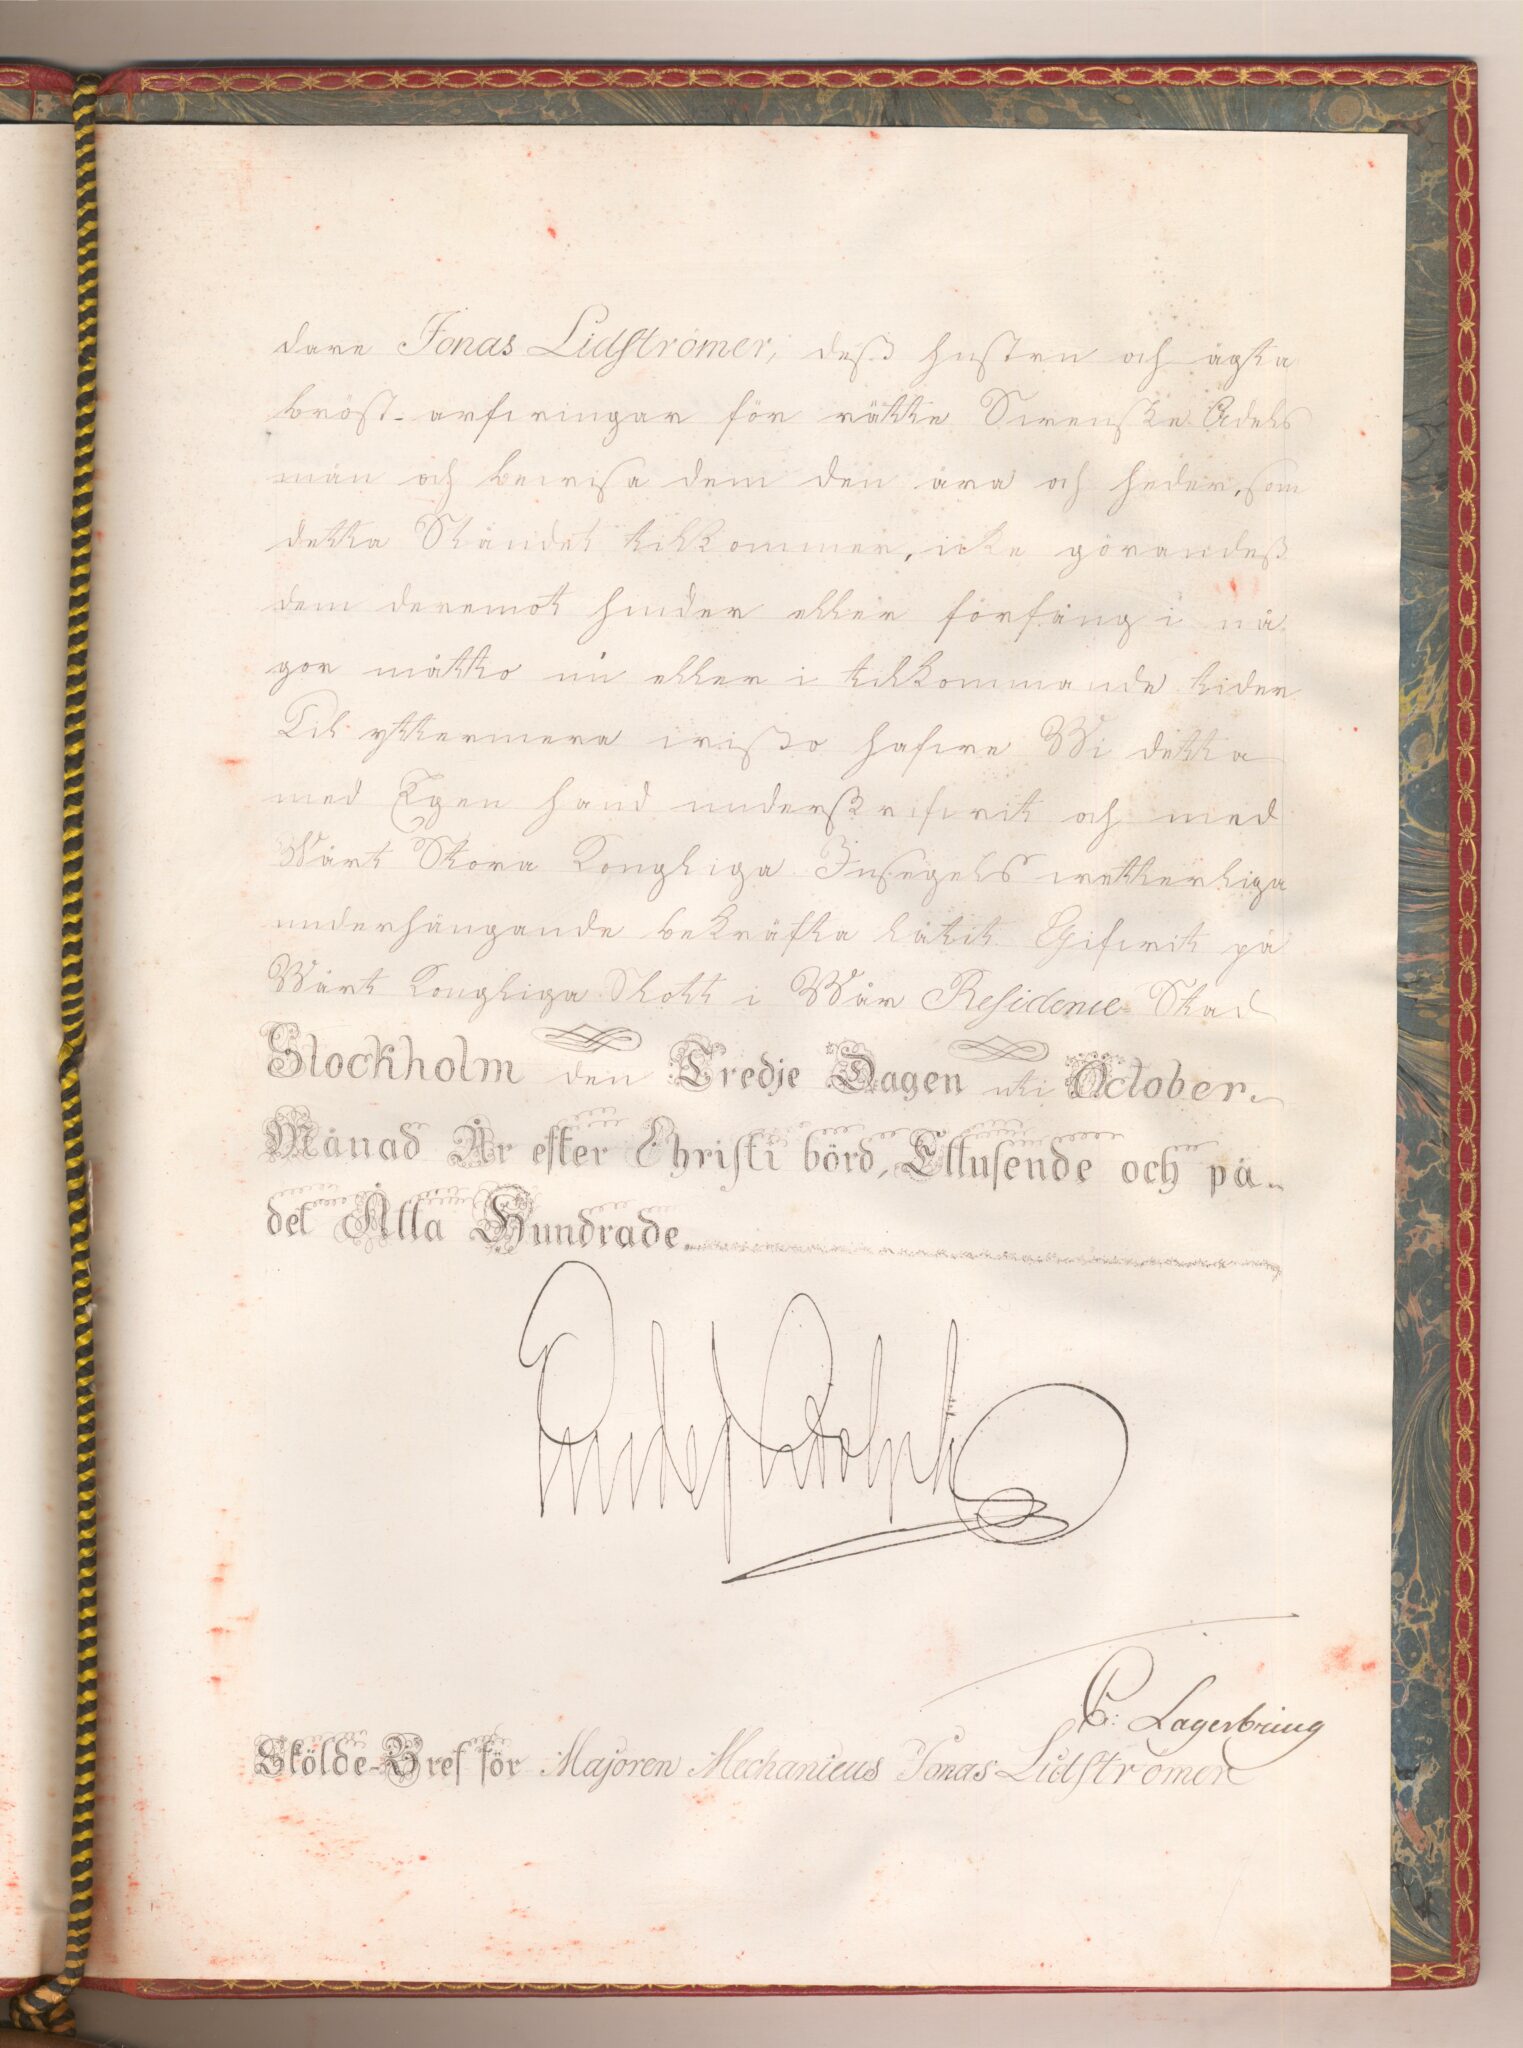 dare Jonas Lidströmer, deß hustru och ägta
bröst-arfvingar för rätte Svenske Adels
män och bevisa dem den ära och heder, som
detta Ståndet tilkommer, icke görandeß
dem deremot hinder eller förfång i nå
gor måtto nu eller i tilkommande tider
Til yttermera visßo hafve Wi detta
med Egen hand underskrifvit och med
Wårt Stora Kongliga Insegels vetterliga
underhängande bekräfta låtit. Gifvit på
Wårt Kongliga Slott i Wår Residence Stad
Stockholm den Tredje Dagen uti October
Månad År efter Christi börd, Ettusende och på
det Åtta Hundrade
Gustaf Adolph
C: Lagerbring
Skölde-Bref för Majoren Mechanicus Jonas Lidströmer